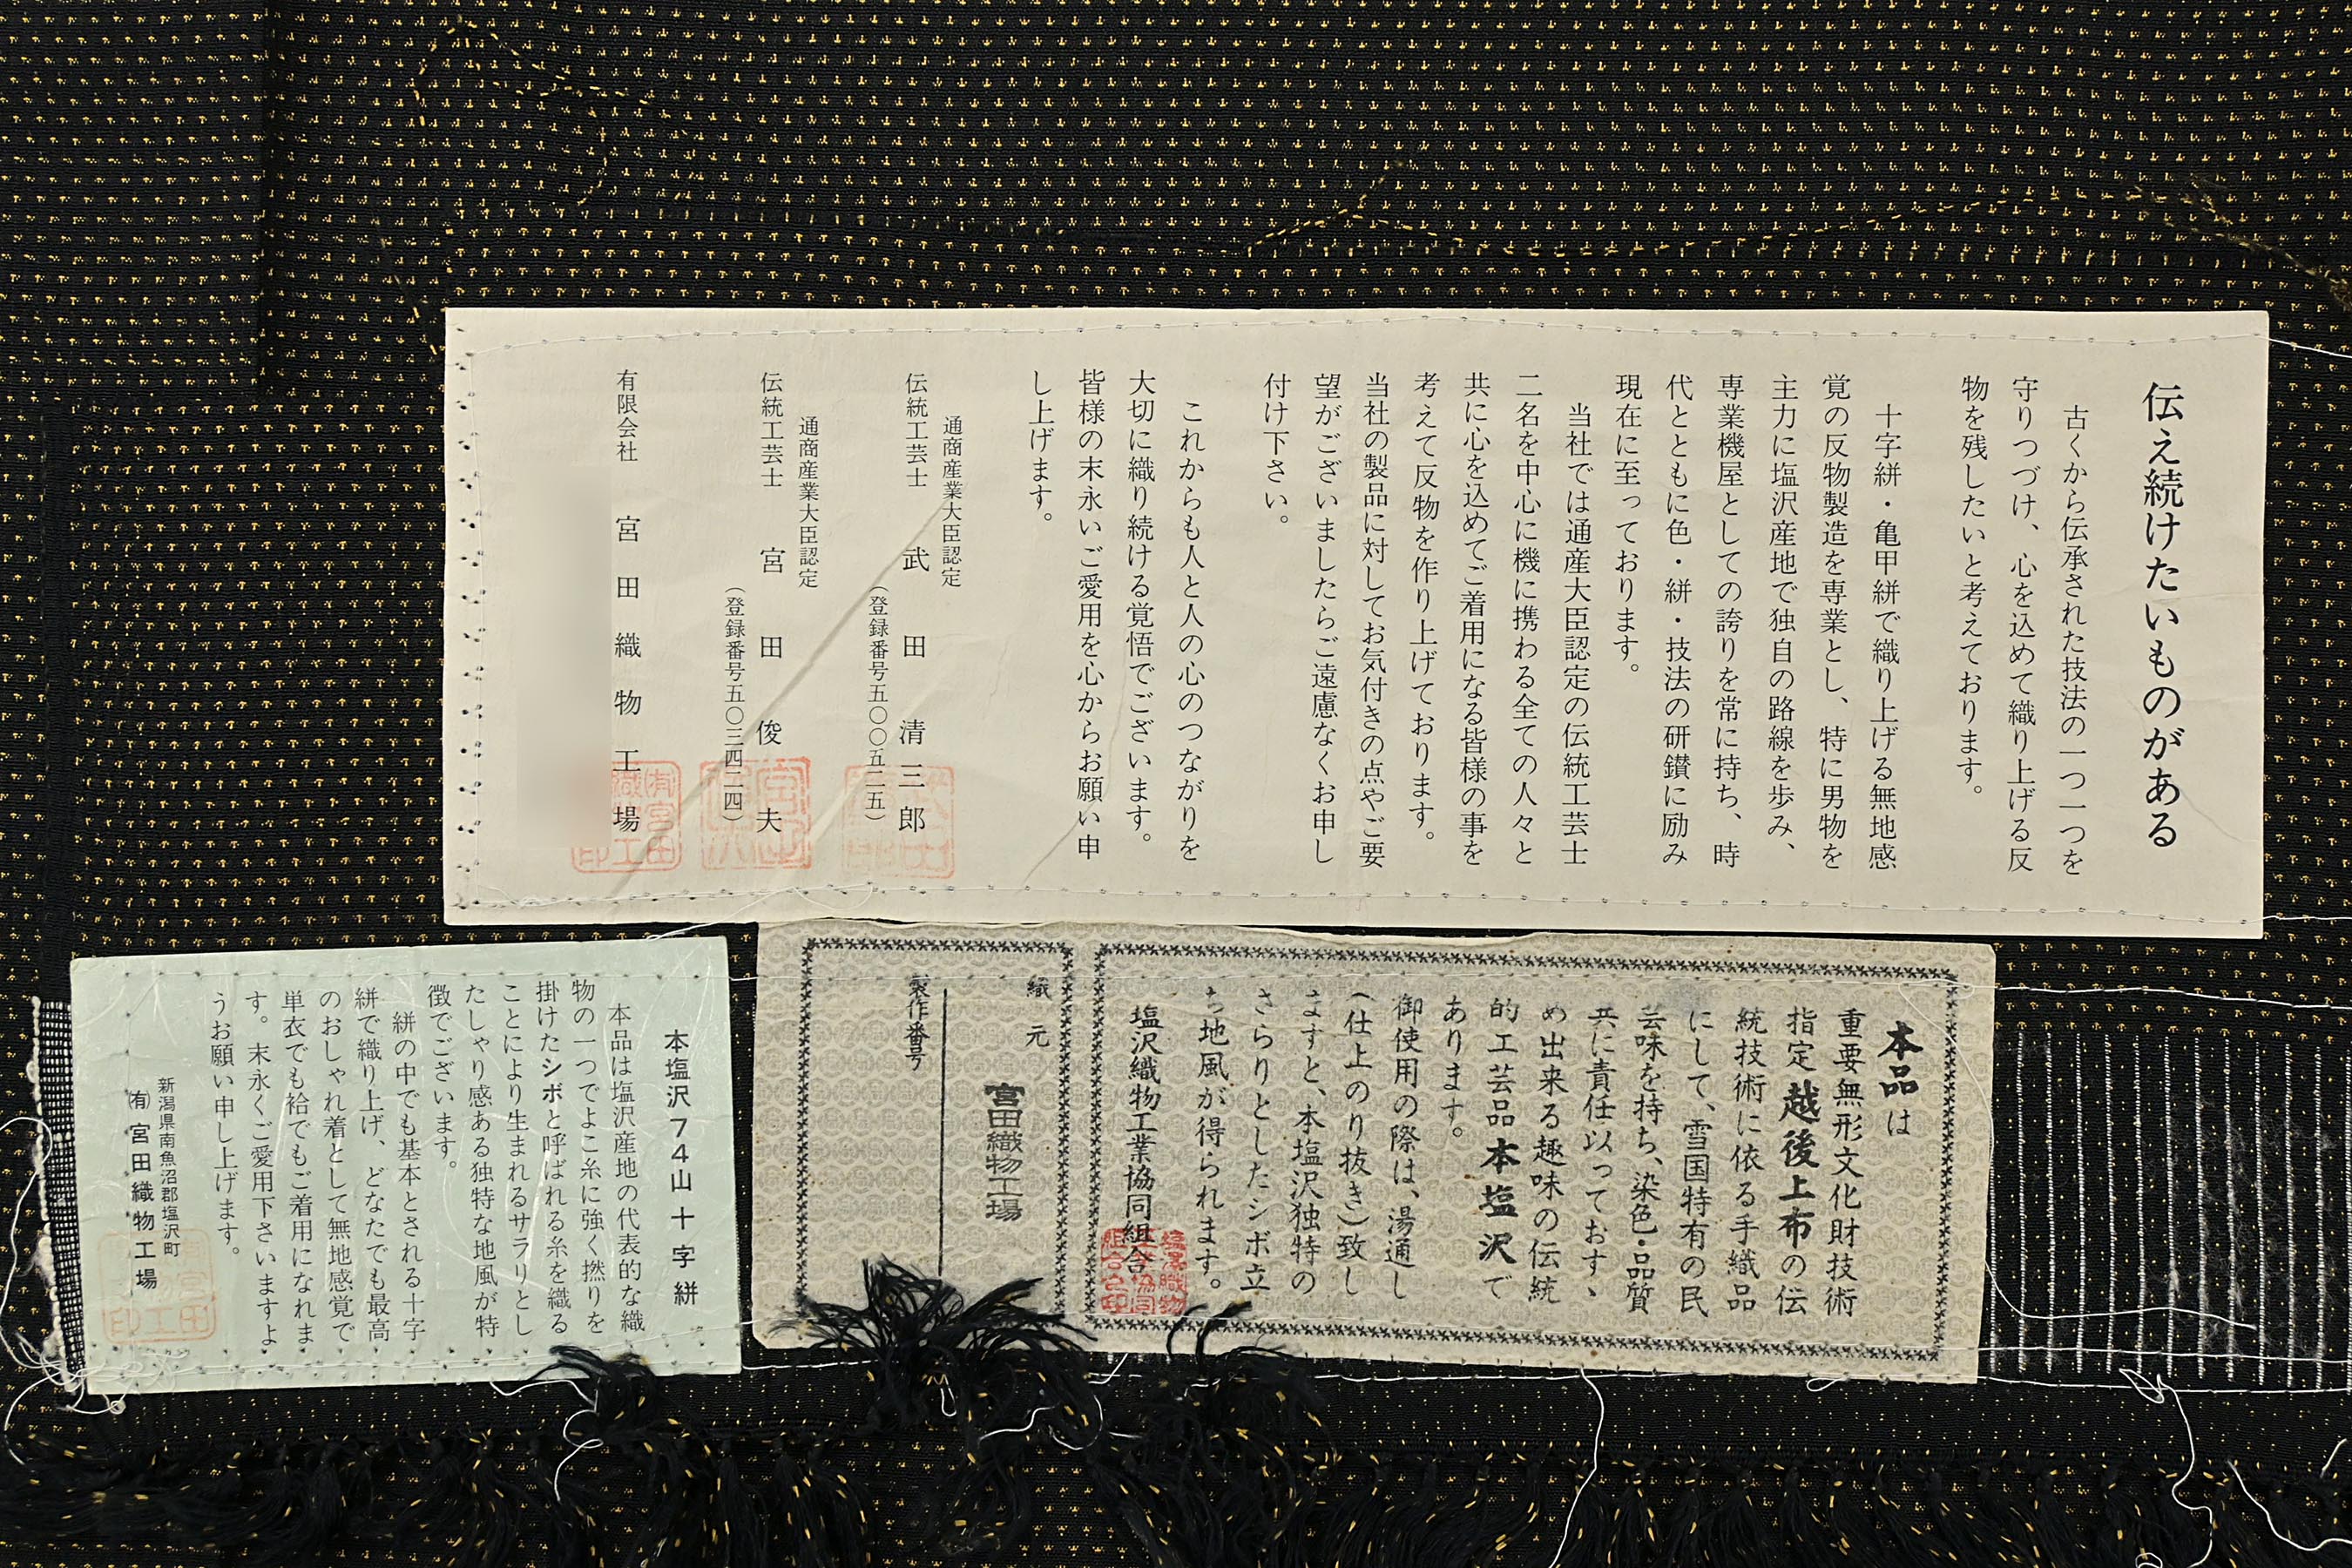 伝え続けたいものがある
古くから伝承された技法の一つ一つを
守りつづけ、心を込めて織り上げる反
物を残したいと考えております。
十字絣・亀甲絣で織り上げる無地感
覚の反物製造を専業とし、特に男物を
主力に塩沢産地で独自の路線を歩み、
専業機屋としての誇りを常に持ち、時
代とともに色・絣・技法の研鑽に励み
現在に至っております。
当社では通産大臣認定の伝統工芸士
二名を中心に機に携わる全ての人々と
共に心を込めてご着用になる皆様の事を
考えて反物を作り上げております。
当社の製品に対してお気付きの点やご要
望がございましたらご遠慮なくお申し
付け下さい。
これからも人と人の心のつながりを
大切に織り続ける覚悟でございます。
皆様の末永いご愛用を心からお願い申
し上げます。
通商産業大臣認定
伝統工芸士 武田清三郎
(登録番号五〇〇五二五)
通商産業大臣認定
伝統工芸士 宮田俊夫
(登録番号五〇三四二四)
有限会社 宮田織物工場
本品は
重要無形文化財技術
指定越後上布の伝
統技術に依る手織品
にして、雪国特有の民
芸味を持ち、染色・品質
共に責任以っておす、
め出来る趣味の伝統
的工芸品本塩沢で
あります。
御使用の際は、湯通し
(仕上のり抜き)致し
ますと、本塩沢独特の
さらりとしたシボ立
ち地風が得られます。
塩沢織物工業協同組合
塩澤織物
工業協同
組合之印
織元
宮田織物工場
製作番号
本塩沢74山十字絣
本品は塩沢産地の代表的な織
物の一つでよこ糸に強く撚りを
掛けたシボと呼ばれる糸を織る
ことにより生まれるサラリとし
たしゃり感ある独特な地風が特
徴でございます。
絣の中でも基本とされる十字
絣で織り上げ、どなたでも最高
のおしゃれ着として無地感覚で
単衣でも袷でもご着用になれま
す。末永くご愛用下さいますよ
うお願い申し上げます。
新潟県南魚沼郡塩沢町
(有)宮田織物工場